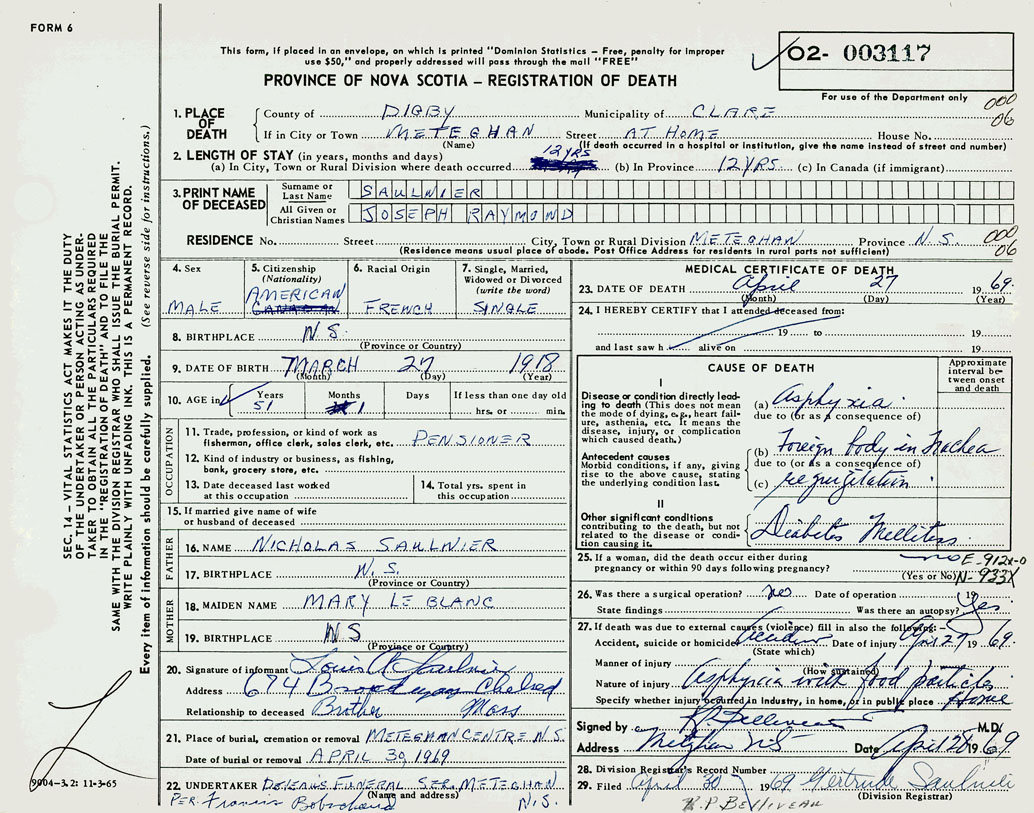 FORM 6
This form, if placed in an envelope, on which is printed "Dominion Statistics – Free, penalty for improper
use $50," and properly addressed will pass through the mail "FREE"
PROVINCE OF NOVA SCOTIA – REGISTRATION OF DEATH
O2- 003117
For use of the Department only
000
06
SEC. 14 – VITAL STATISTICS ACT MAKES IT THE DUTY
OF THE UNDERTAKER OR PERSON ACTING AS UNDER-
TAKER TO OBTAIN ALL THE PARTICULARS REQUIRED
IN THE "REGISTRATION OF DEATH" AND TO FILE THE
SAME WITH THE DIVISION REGISTRAR WHO SHALL ISSUE THE BURIAL PERMIT.
WRITE PLAINLY WITH UNFADING INK. THIS IS A PERMANENT RECORD.
Every item of information should be carefully supplied. (See reverse side for instructions.)
1. PLACE OF DEATH
County of DIGBY Municipality of CLARE
If in City or Town METEGHAN Street AT HOME House No.
(Name) (If death occurred in a hospital or institution, give the name instead of street and number)
2. LENGTH OF STAY (in years, months and days) 12 YRS
(a) In City, Town or Rural Division where death occurred (b) In Province 12 YRS. (c) In Canada (if immigrant)
3. PRINT NAME OF DECEASED
Surname or Last Name SAULNIER
All Given or Christian Names JOSEPH RAYMOND
RESIDENCE No. Street City, Town or Rural Division METEGHAN Province N.S. 000
(Residence means usual place of abode. Post Office Address for residents in rural parts not sufficient) 06
4. Sex MALE
5. Citizenship (Nationality) AMERICAN CANADIAN
6. Racial Origin FRENCH
7. Single, Married, Widowed or Divorced (write the word) SINGLE
8. BIRTHPLACE N.S.
(Province or Country)
9. DATE OF BIRTH MARCH 27 1918
(Month) (Day) (Year)
10. AGE in Years Months Days If less than one day old
51 1 hrs. or min.
OCCUPATION
11. Trade, profession, or kind of work as
fisherman, office clerk, sales clerk, etc. PENSIONER
12. Kind of industry or business, as fishing,
bank, grocery store, etc.
13. Date deceased last worked
at this occupation
14. Total yrs. spent in
this occupation
15. If married give name of wife
or husband of deceased
FATHER
16. NAME NICHOLAS SAULNIER
17. BIRTHPLACE N.S.
(Province or Country)
MOTHER
18. MAIDEN NAME MARY LE BLANC
19. BIRTHPLACE N S
(Province or Country)
20. Signature of informant Louis A Saulnier
Address 674 Broadway Chelsea
Relationship to deceased Brother Mass
21. Place of burial, cremation or removal METEGHAN CENTRE N.S.
Date of burial or removal APRIL 30, 1969
22. UNDERTAKER FUNERAL SER. METEGHAN
(Name and address) N.S.
PER. Francis
9004-3.2: 11-3-65
MEDICAL CERTIFICATE OF DEATH
23. DATE OF DEATH April 27 1969.
(Month) (Day) (Year)
24. I HEREBY CERTIFY that I attended deceased from:
19 to 19
and last saw h alive on 19
CAUSE OF DEATH
Approximate interval between onset and death
I
Disease or condition directly lead-
ing to death (This does not mean
the mode of dying, e.g., heart fail-
ure, asthenia, etc. It means the
disease, injury, or complication
which caused death.)
(a) Asphyxia
due to (or as a consequence of)
Antecedent causes
Morbid conditions, if any, giving
rise to the above cause, stating
the underlying condition last.
(b) Foreign body in Trachea
due to (or as a consequence of)
(c) regurgitation
II
Other significant conditions
contributing to the death, but not
related to the disease or condi-
tion causing it.
Diabetes Mellitus
25. If a woman, did the death occur either during
pregnancy or within 90 days following pregnancy? no
(Yes or No)
E-912X-0
N-933X
26. Was there a surgical operation? no Date of operation 19
State findings Was there an autopsy? Yes
27. If death was due to external causes (violence) fill in also the following:–
Accident, suicide or homicide Accident Date of injury April 27 1969.
(State which)
Manner of injury
(How sustained)
Nature of injury Asphyxia with food particles
Specify whether injury occurred in industry, in home, or in public place Home
Signed by RP Belliveau M.D.
Address Meteghan NS Date April 28 1969
28. Division Registrar's Record Number
29. Filed April 30 1969 Gertrude Saulnier
(Division Registrar)
R.P BELLIVEAU